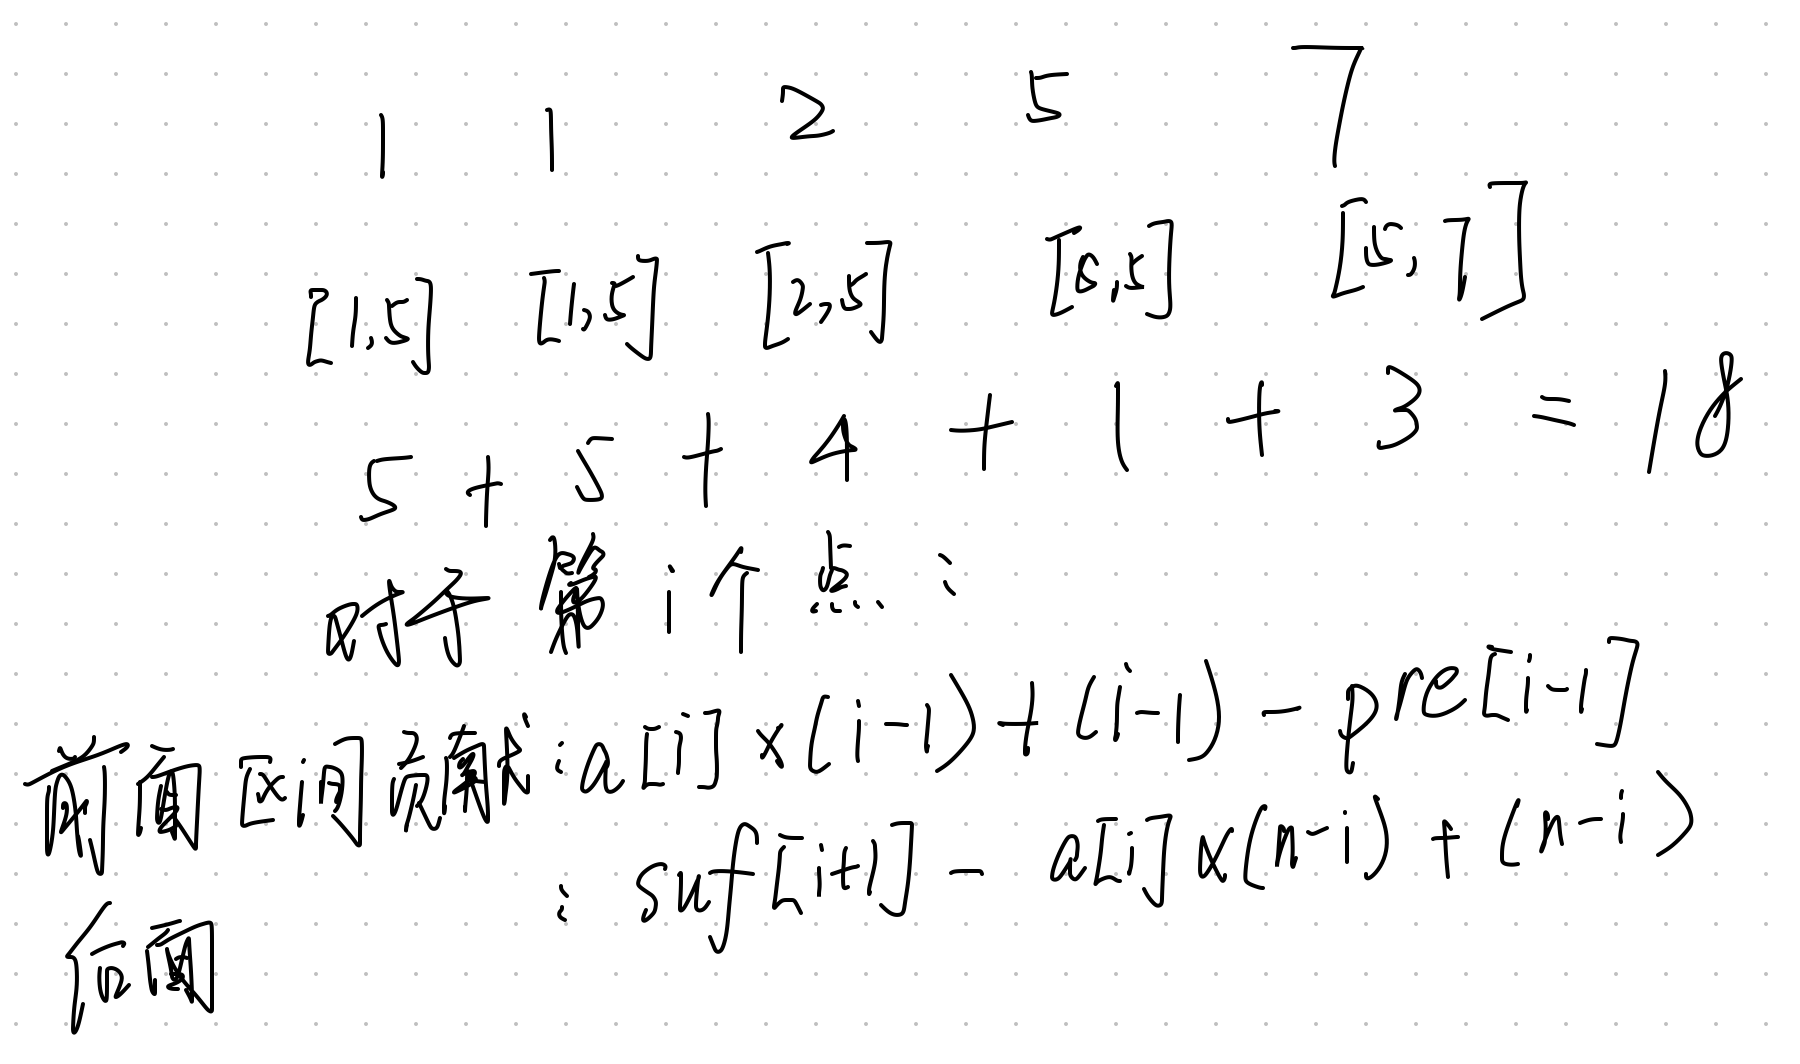 1 1 2 5 7
[1,5] [1,5] [2,5] [5,5] [5,7]
5 + 5 + 4 + 1 + 3 = 18
对于第i个点:
前面区间贡献:a[i]×(i-1)+(i-1)-pre[i-1]
后面:suf[i+1]-a[i]×(n-i)+(n-i)